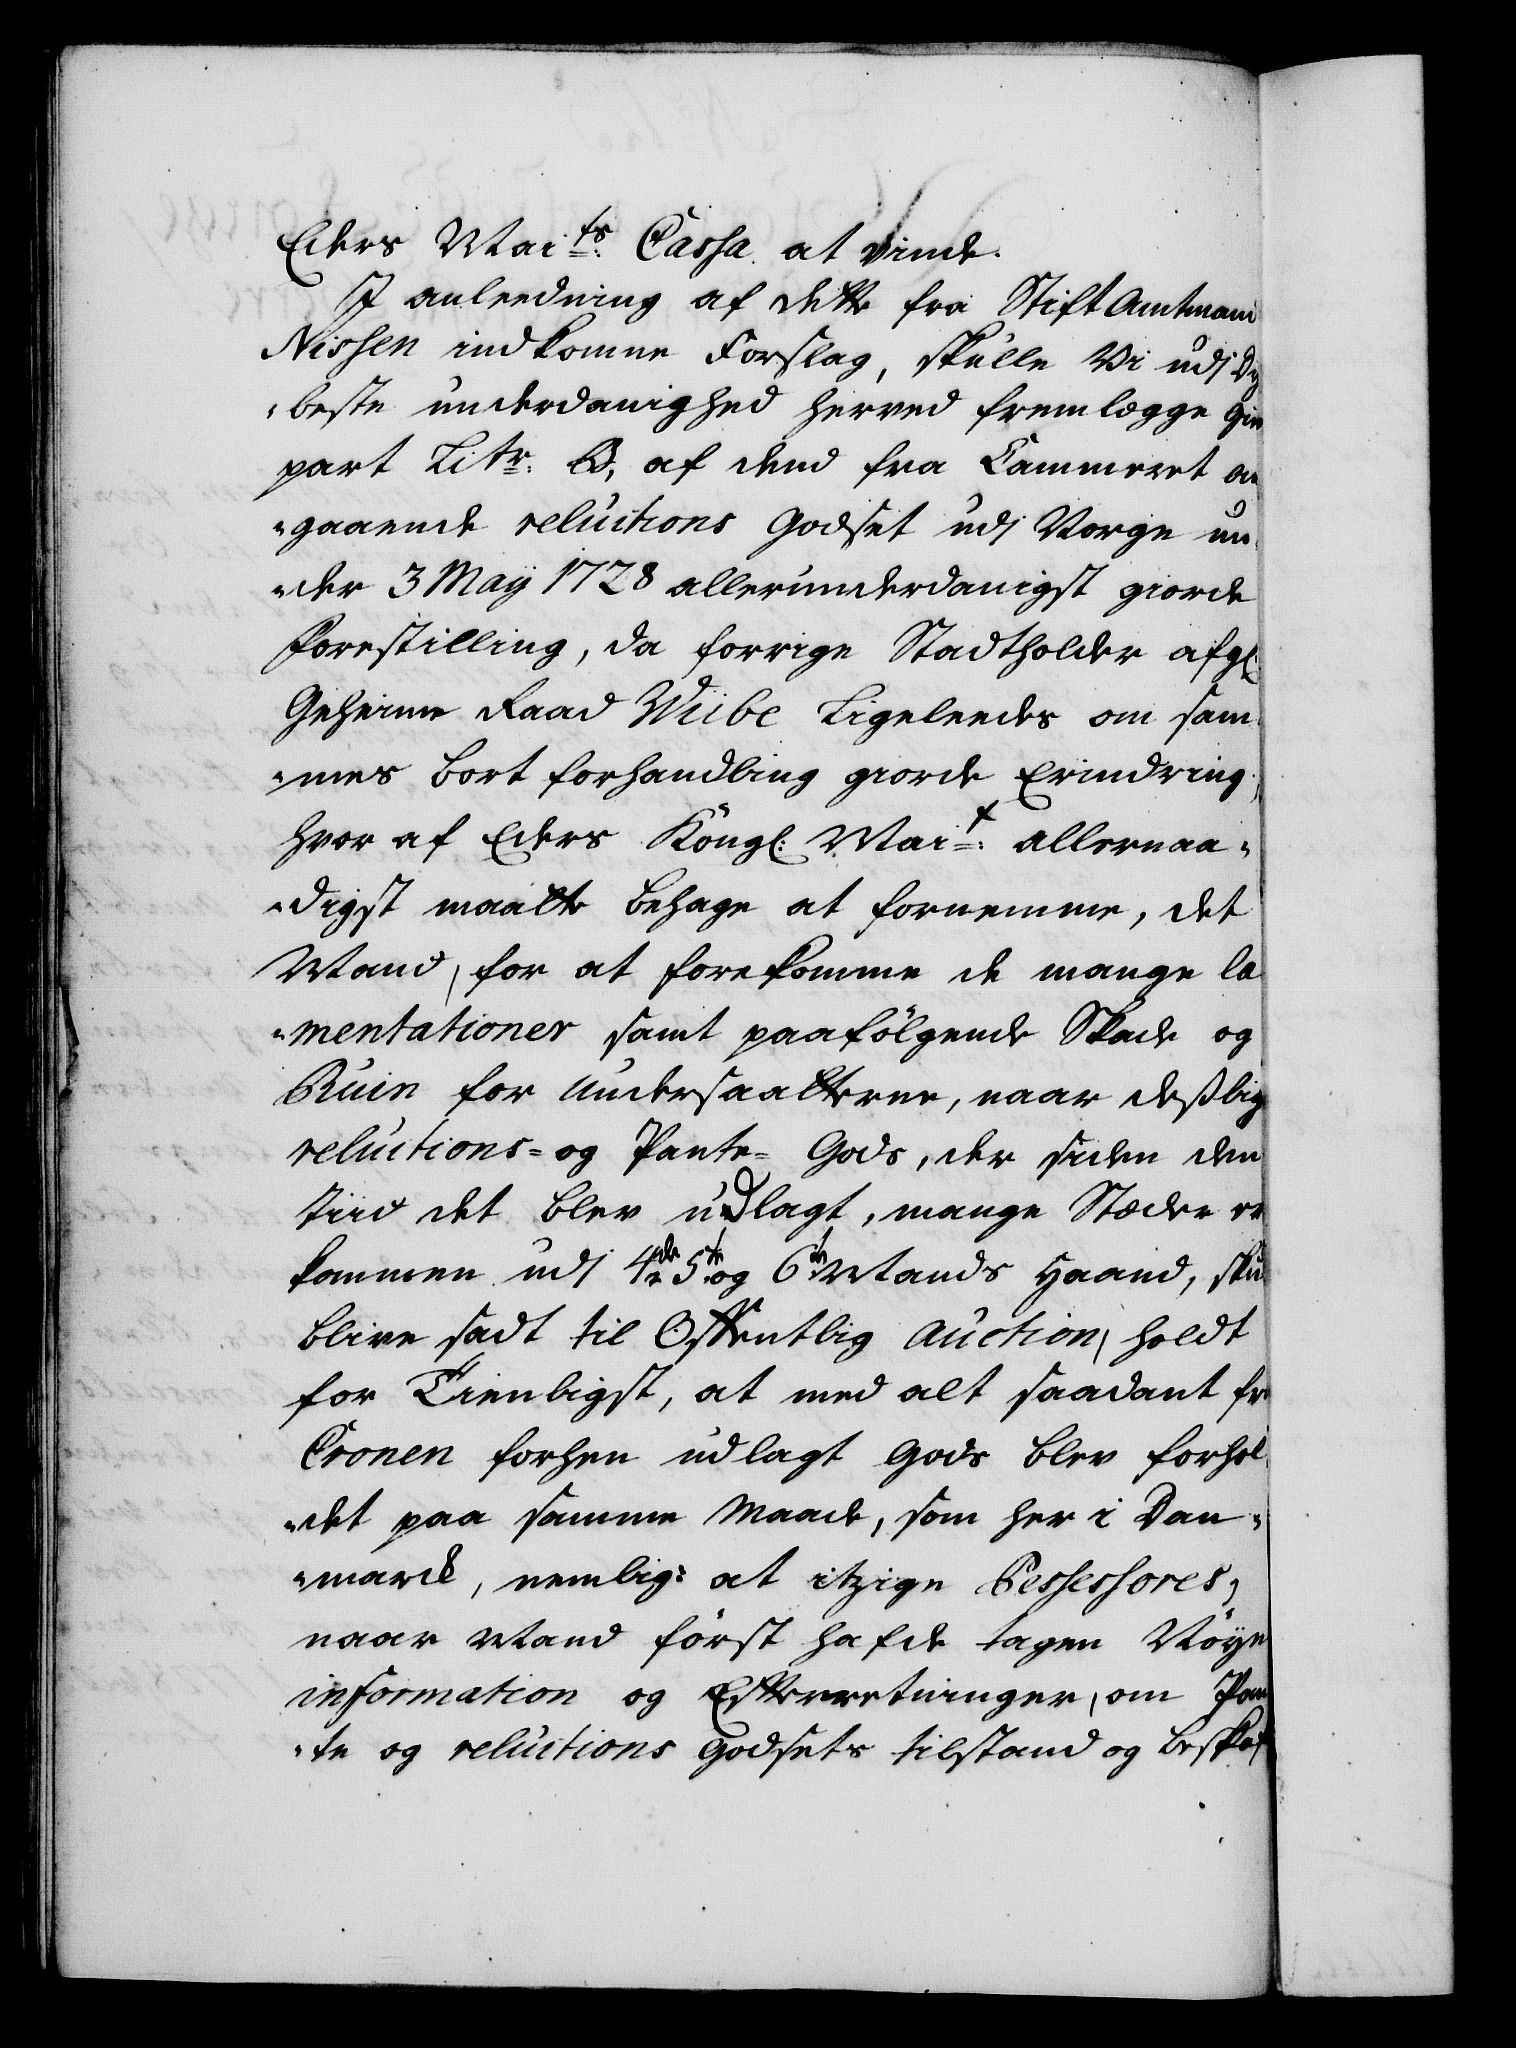 Eders Mai^ts: Cassa at vinde.
I anleedning af dette fra Stift Amtmand
Nissen indkomne Forslag, skulle Vi udj Dy
"beste underdanighed herved fremlegge Gien
part Litr: B, af dend fra Cammeret an
"gaaende relutions Godset udj Norge un„
"der 3 Maÿ 1728 allerunderdanigst giorde
forestilling, da forrige Stadtholder afgl:
Geheime Raad Wiibe Ligeleedes om sam„
"mes bort forhandling giorde Erindring;
hvor af Eders Köngl: Mai^t: allernaa„
"digst maatte behage at fornemme, det
Mand, for at forekomme de mange la
"mentationer samt paafölgende Skade og
Ruin for Undersaatterne, naar deßlig
relutions= og Pante= Gods, der siden den
Tiid det blev udlagt, mange Stæder er
kommen udj 4de 5te og 6te Mands Haand, sku
blive sadt til Offentlig Auction, holdt
for Tienligst, at med alt saadant fra
Cronen forhen udlagt Gods blev forhol„
"det paa samme Maade, som her i Dan„
"marck, nemlig: at itzige Possessores,
naar Mand först hafde tagen Nöye
information og Efterretninger, om Pan
"te og relutions Godsets tilstand og beskaf